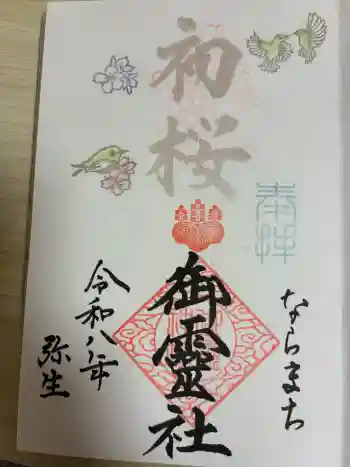 奉拝
ならまち
初桜
御靈社
令和八年
弥生